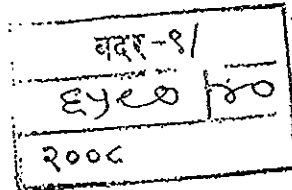 बदर-९/
६५७० | ४०
२००८